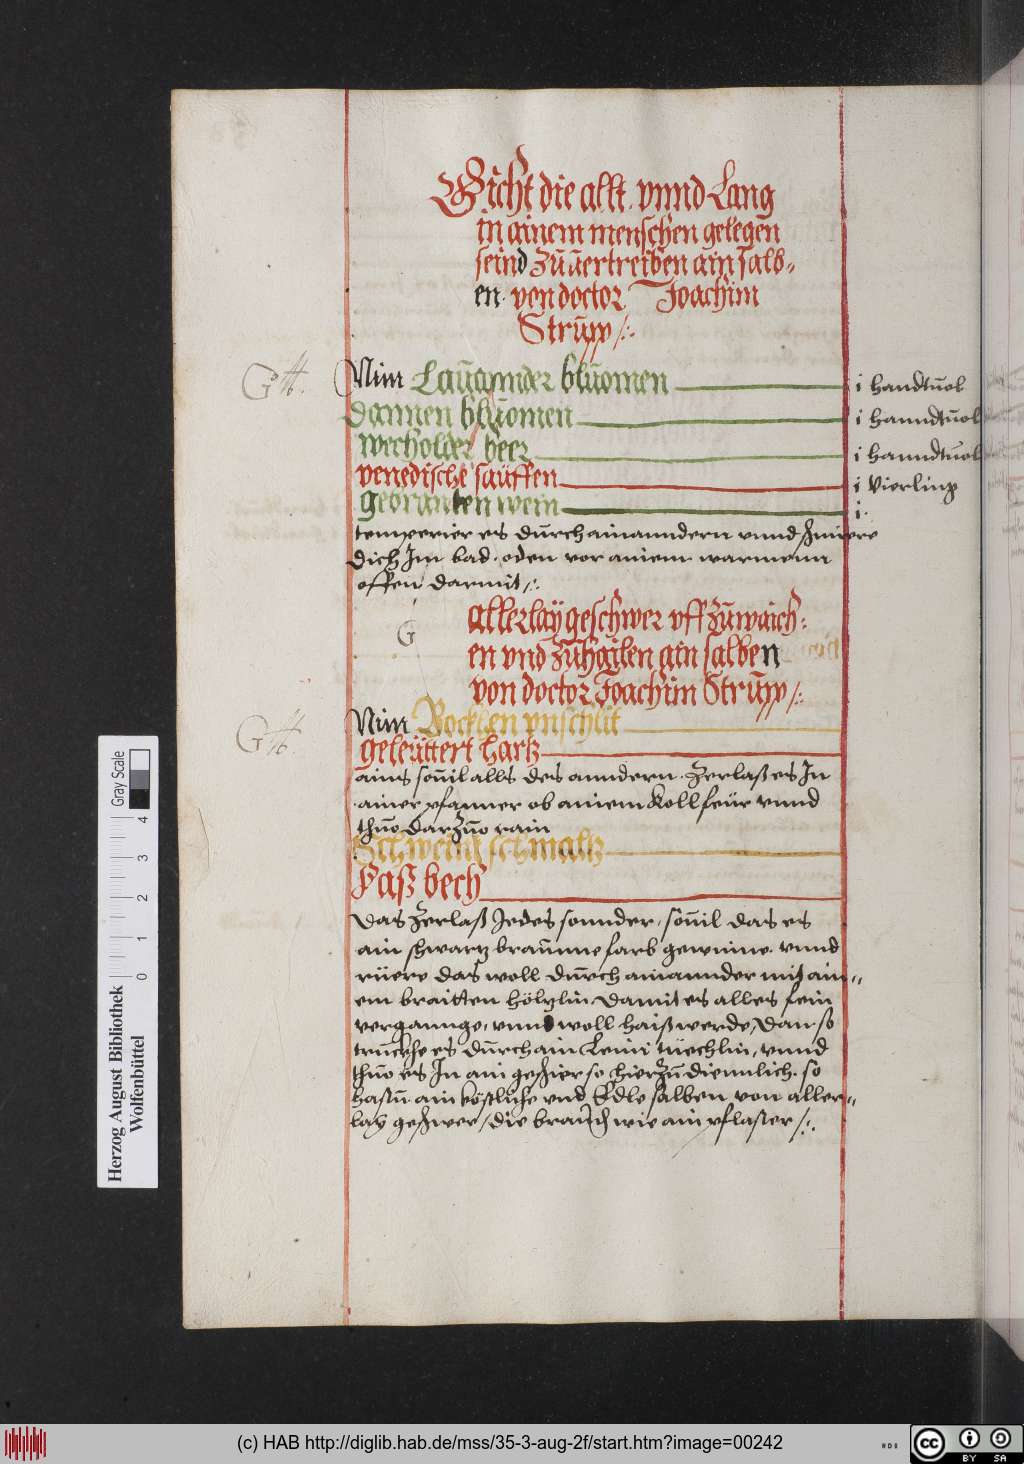 Gicht die allt. vnnd Lang
in ainem menschen gelegen
seind zůuertreiben ain salb-
en. von doctor Joachim
Strupp /:.
Nim Lauaynder bluomen i handtuol
dannen bluomen i hanndtuol
wecholder beer i hanndtuol
venedische sauffen i Vierling
gebranten wein i.
temperier es durch ainanndern vnnd
dich Im bad. oder vor ainem warmenn
offen darmit /:.
G
allerlay geschwer vff zuwaich:
en vnd zuhailen ain salben
von doctor Joachim Strupp /:.
Nim Bockhen vnschlit
geleüttert hartz
ains souil alls des anndern. Zerlaß es In
ainer pfanner ob ainem kollfeür vnnd
thuo darzuo rain
Schweini schmaltz
Faß bech
das zerlaß Jedes sonnder, souil das es
ain schwartz braunne farb gewinne. vnnd
rüere das woll durch ainannder mit ain-
em braitten höltzlin damit es alles fein
verganngе, vnnd woll haiß werde, dan so
truckhe es durch ain Leini tüechlin, vnnd
thuo es In ain geschier so hierzu diennlich. so
hastu ain köstliche vnd Edle salben von aller-
lay geschwer / die brauch wie ain pflaster /:.
Gray Scale
0 1 2 3 4
Herzog August Bibliothek
Wolfenbüttel
(c) HAB http://diglib.hab.de/mss/35-3-aug-2f/start.htm?image=00242
cc BY SA